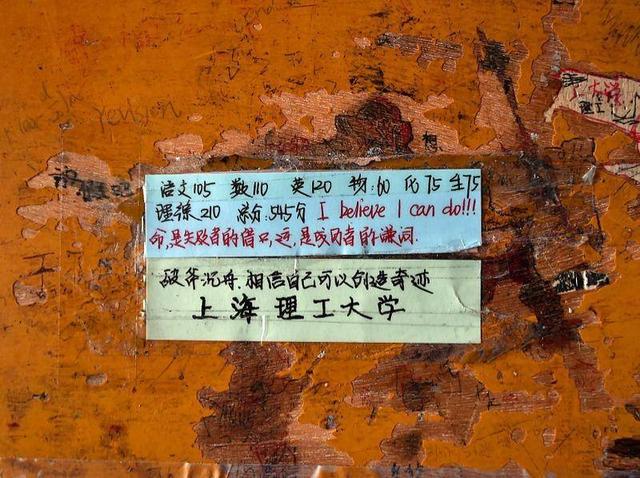 Yenyen
语文105 数110 英120 物:60 化75 生75
理综210 总分:545分 I believe I can do!!!
命,是失败者的借口,运,是成功者的谦词.
破斧沉舟.相信自己可以创造奇迹
上海理工大学